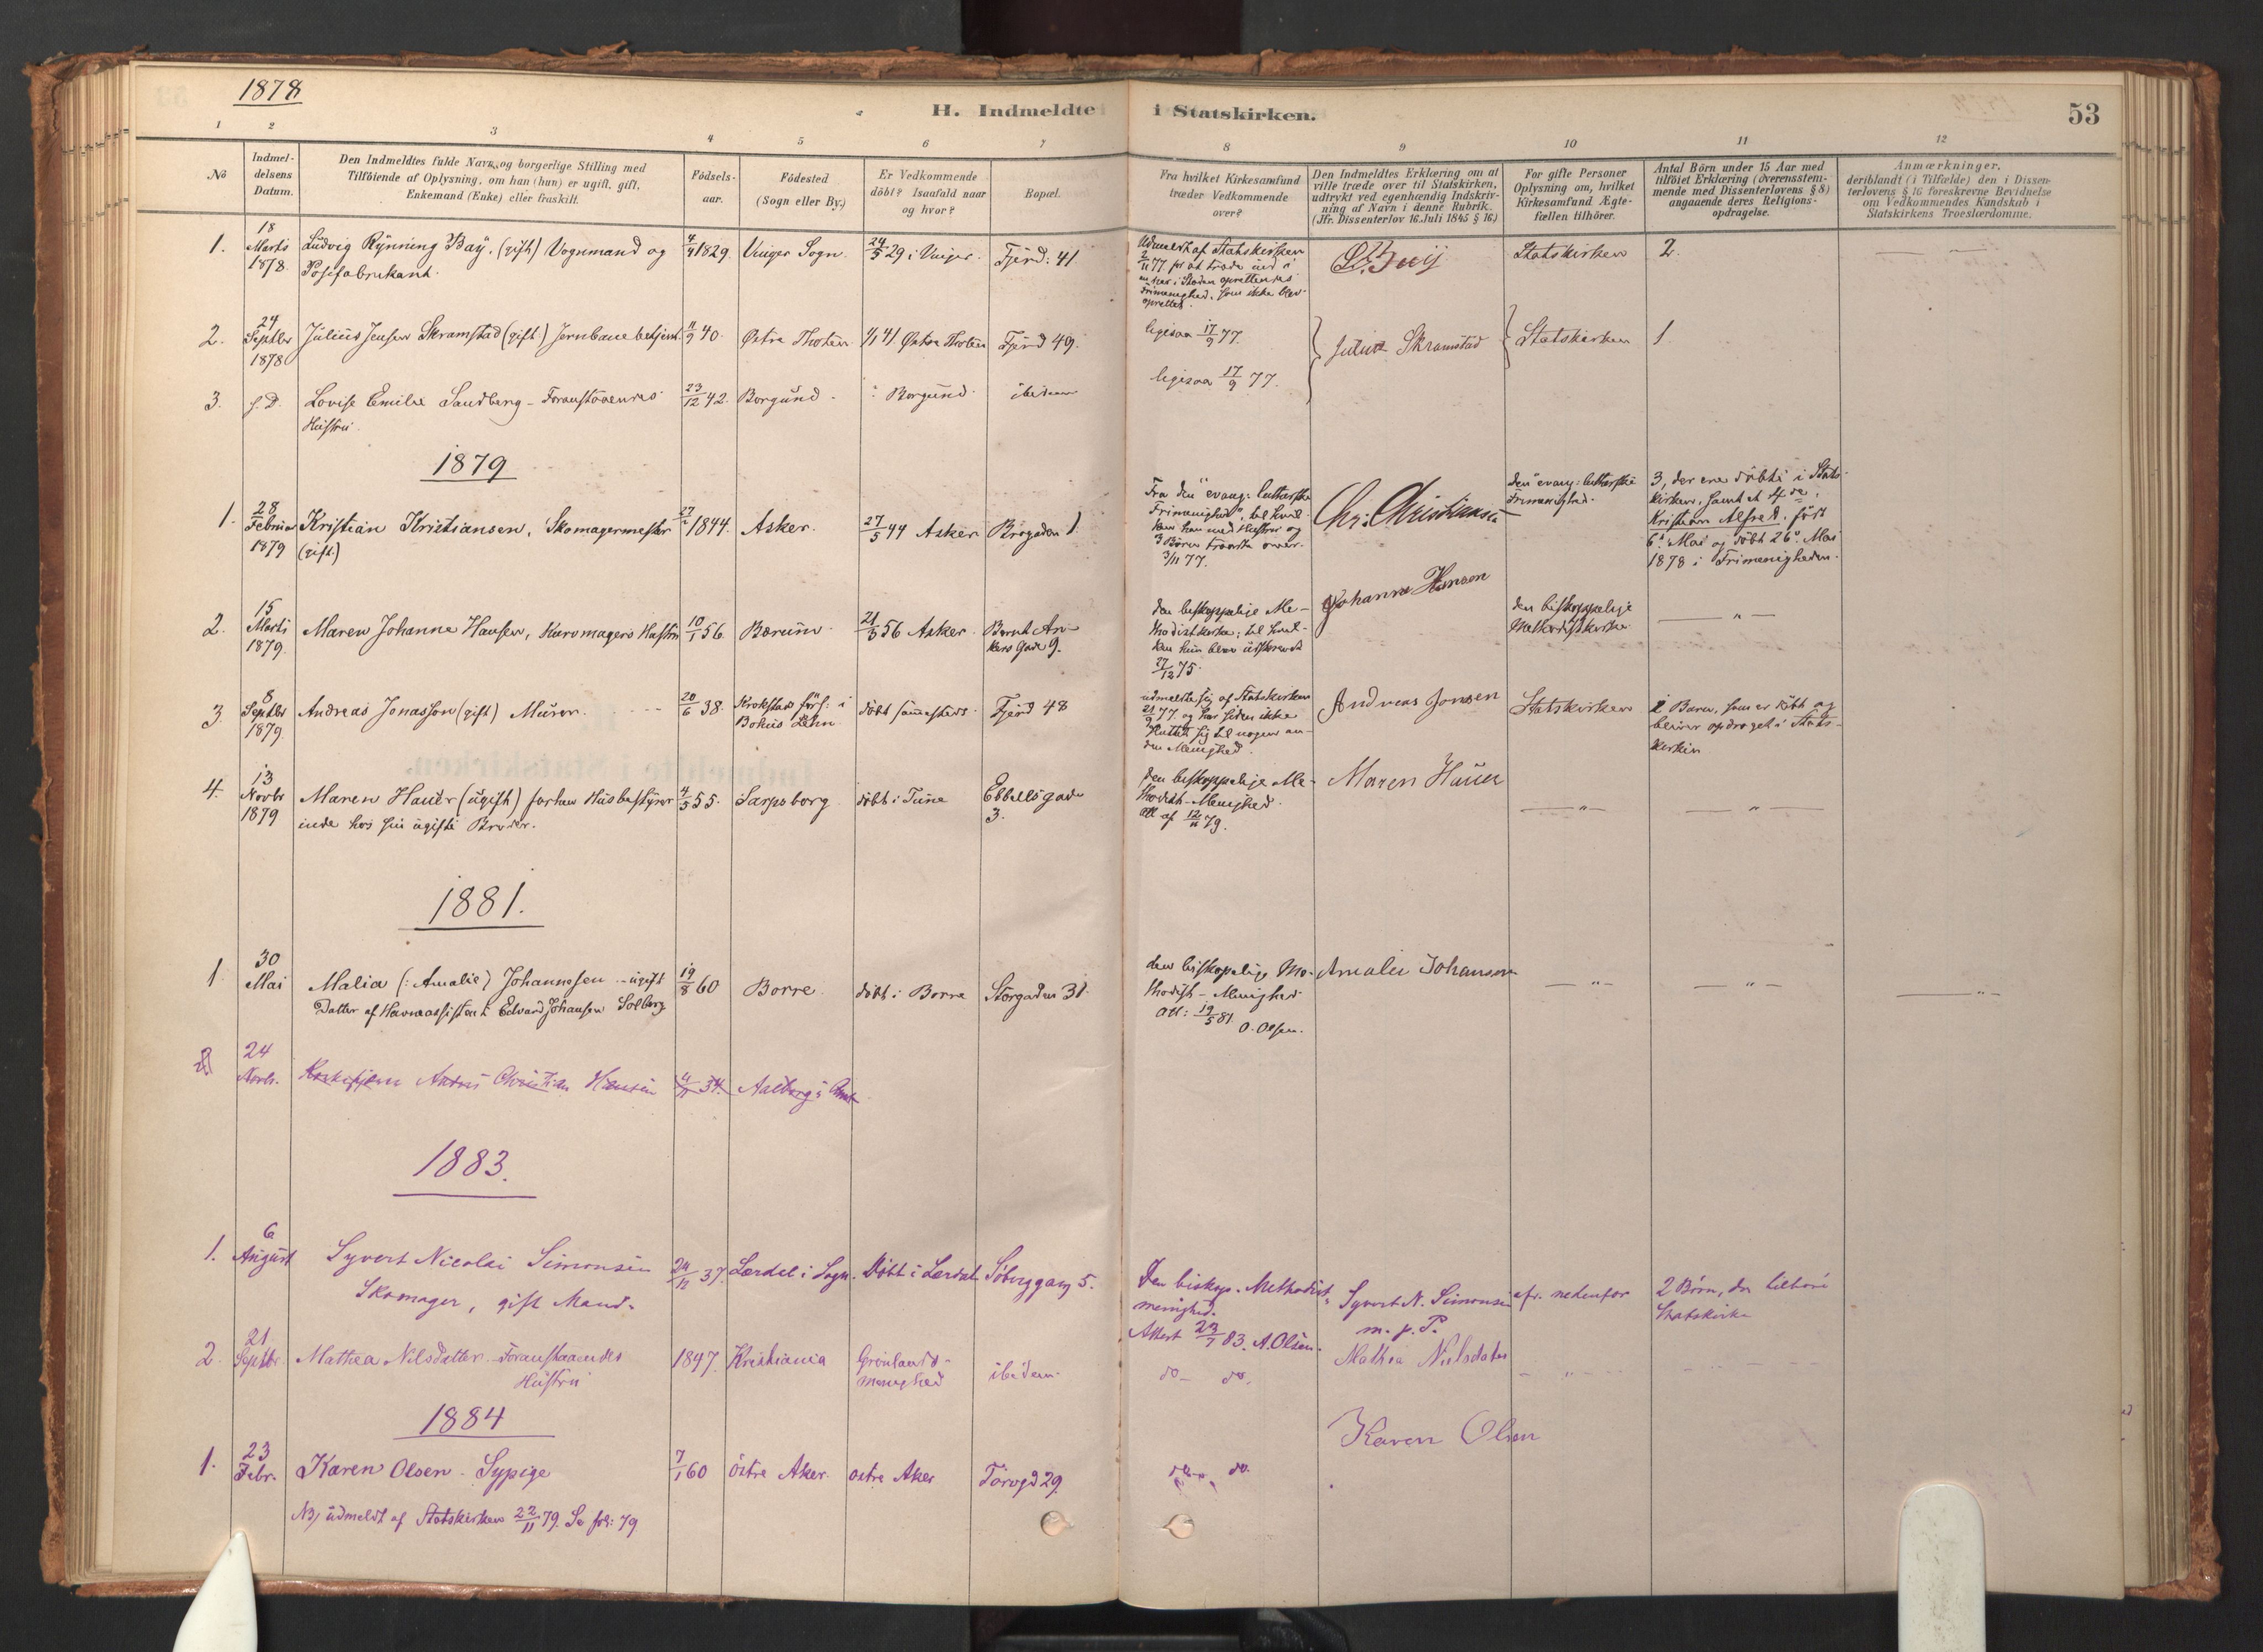 1878
H. Indmeldte i Statskirken.
53
1 2 3 4 5 6 7 8 9 10 11 12
No
Indmel-
delsens
Datum.
Den Indmeldtes fulde Navn og borgerlige Stilling med
Tilföiende af Oplysning, om han (hun) er ugift, gift,
Enkemand (Enke) eller fraskilt.
Födsels-
aar.
Födested
(Sogn eller By.)
Er Vedkommende
döbt? Isaafald naar
og hvor?
Bopæl.
Fra hvilket Kirkesamfund
træder Vedkommende
over?
Den Indmeldtes Erklæring om at
ville træde over til Statskirken,
udtrykt ved egenhændig Indskriv-
ning af Navn i denne Rubrik.
(Jfr. Dissenterlov 16. Juli 1845 § 16.)
For gifte Personer
Oplysning om, hvilket
Kirkesamfund Ægte-
fællen tilhörer.
Antal Börn under 15 Aar med
tilföiet Erklæring (overensstem-
mende med Dissenterlovens § 8)
angaaende deres Religions-
opdragelse.
Anmærkninger,
deriblandt (i Tilfælde) den i Dissen-
terlovens § 16 foreskrevne Bevidnelse
om Vedkommendes Kundskab i
Statskirkens Troeslærdomme.
1.
18
Marts
1878.
Ludvig Rynning Bay. (gift) Vognmand og
Posefabrikant.
4/4 1829.
Vinger Sogn.
24/5 29 i Vinger.
Fjerd. 41
Udmeldt af Statskirken
77 for at træde ind i
en her i Staden oprettendes
Frimenighed, som ikke blev
oprettet.
Statskirken
2.
2.
24
Septbr
1878
Julius Jensen Skramstad (gift) Jernbanebetjent.
11/9 40.
Østre Thoten
1/11 41 Østre Thoten
Fjerd 49.
ligesaa 17/9 77.
Julius Skramstad
Statskirken
1
3.
s. D.
Lovise Emilie Sandberg - Foranstaaendes
Hustru.
23/12 42.
Borgund.
i Borgund.
ibidem
ligesaa 17/9 77.
1879
1.
28
Februar
1879
Kristian Kristiansen, Skomagermester
(gift)
1844.
Asker.
27/5 44 Asker
Brogaden 1.
Fra den "evang: lutherske
Frimenighed", til hvil-
ken han med Hustru og
3 Børn traadte over
3/11 77.
Chr: Christiansen
den "evang: lutherske
Frimenighed.
3, der ere døbte i Stats-
kirken, samt et 4de,
Kristian Alfred, født
6te Mai og døbt 26de Mai
1878 i Frimenigheden.
2.
15
Marts
1879.
Maren Johanne Hansen, Kurvmagers Hustru
10/1 56.
Bærum.
21/3 56 Asker.
Bernt An-
kers Gade 9.
den biskoppelige Me-
thodistkirke; til hvil-
ken hun blev udskrevet
27/12 75.
Johanne Hanson
den biskoppelige
Methodistkirke.
— " —
3.
8
Septbr
1879.
Andreas Jonasson (gift) Murer.
20/6 38.
Krokstad förs: i
Bohus Lehn
døbt sammesteds.
Fjerd 48
udmeldte sig af Statskirken
21/9 77. og har siden ikke
sluttet sig til nogen an-
den Menighed.
Andreas Jonsen
Statskirken
2 Børn, som er døbt og
bliver opdraget i Stats-
kirken
4.
13
Novbr
1879
Maren Hauer (ugift) forhen Husbestyrer
inde hos sin ugifte Broder.
4/5 55.
Sarpsborg
døbt i Tune
Ebbellsgade
3.
Den biskoppelige Me-
thodist-Menighed.
Att af 12/11 79.
Maren Hauer
— " —
— " —
1881.
1.
30
Mai
Malia (: Amalie) Johannesen - ugift
Datter af Havneassistent Edvard Johansen Solberg
19/8 60
Borre
døbt i Borre
Storgaden 31
den biskopelige Me-
thodist-Menighed
Att: 19/5 81.
O. Olsen.
Amalie Johansen
— " —
— " —
— " —
2
24
Novb.
Anders Christian Hansen
4/11 34.
Aalborg Amt
1883.
1.
6
August
Syvert Nicolai Simonsen
Skomager, gift Mand.
37.
Lærdal i Sogn.
Døbt i Lærdal.
Söberggang 5.
Den biskop. Methodist-
menighed.
Attest 23/7 83. A. Olsen.
Syvert N. Simonsen
m. p. P.
cfr. nedenfor
2 Børn, der tilhøre
Statskirken
2.
21
Septbr.
Mathea Nilsdatter - Foranstaaendes
Hustru
1847.
Kristiania
Grønlands-
menighed
ibidem.
do- do.
Mathea Nielsdater
1884
1.
23
Febr.
Karen Olsen. Sypige
7/1 60
östre Aker.
østre Aker
Torvgd 29.
do. do.
Karen Olsen
NB, udmeldt af Statskirken 22/11 79. Se fol: 79